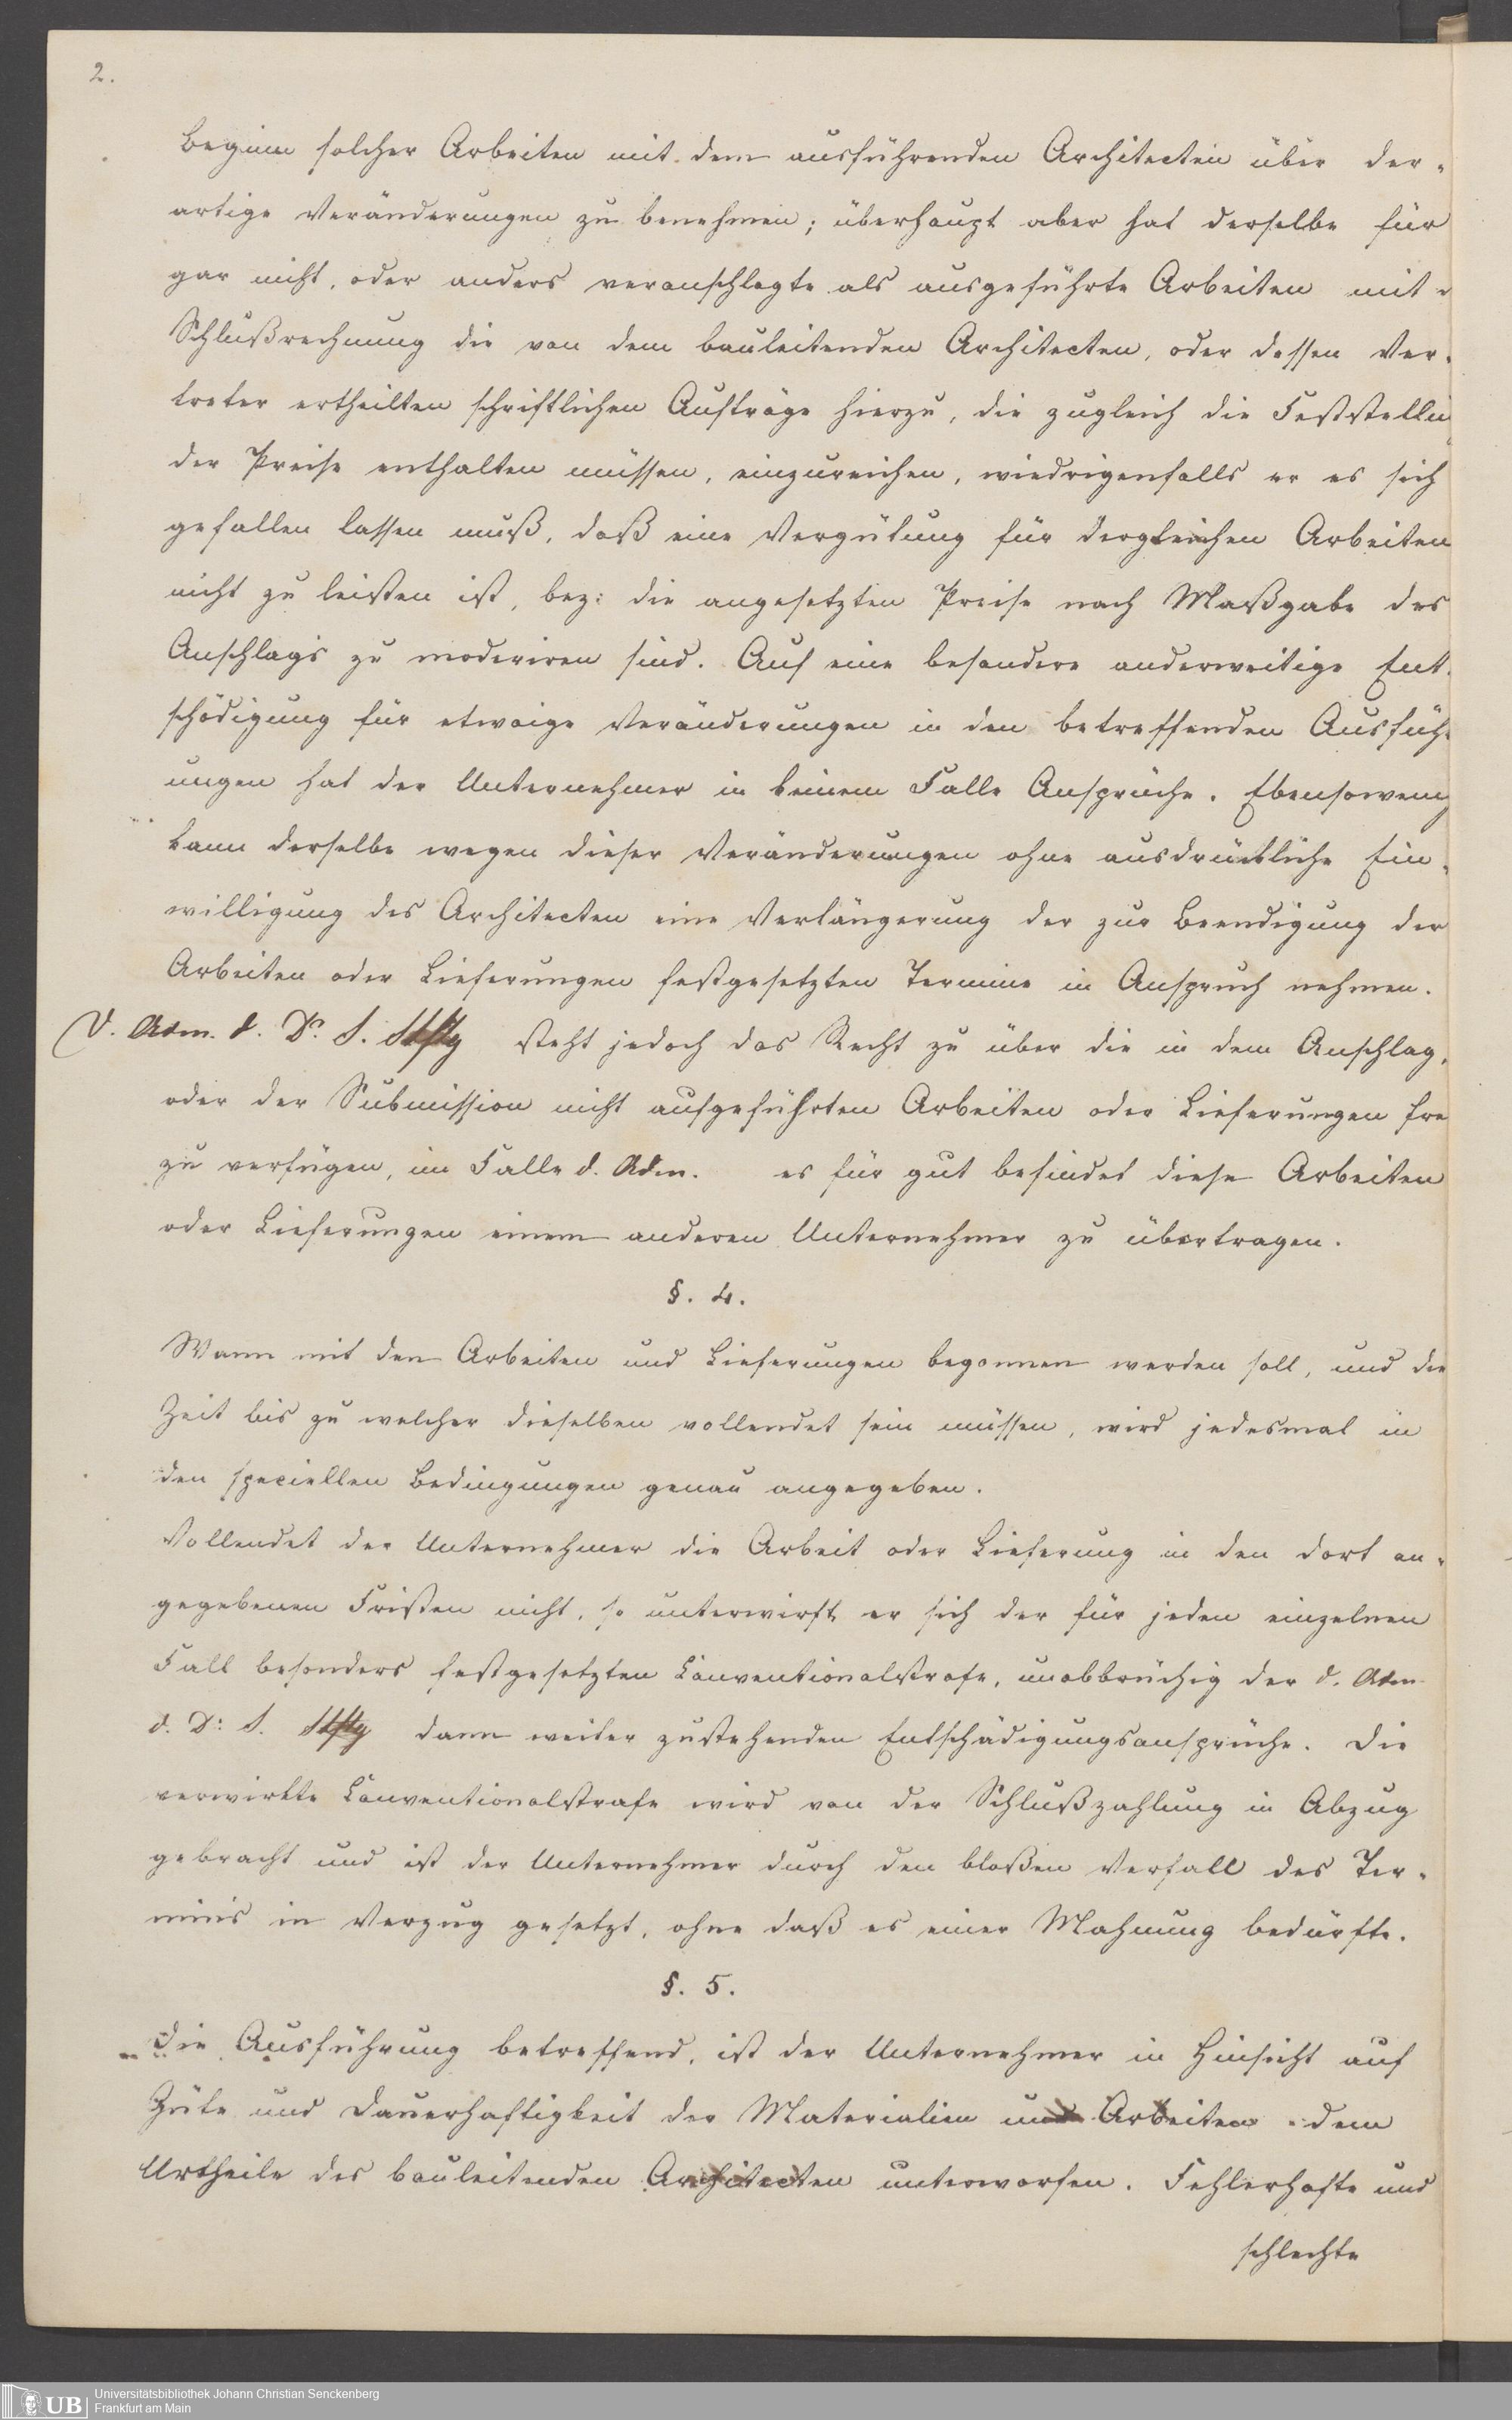 2.
Beginn solcher Arbeiten mit dem ausführenden Architecten über der-
artige Veränderungen zu benehmen; überhaupt aber hat derselbe für
gar nicht, oder anders veranschlagte als ausgeführte Arbeiten mit
Schlußrechnung die von dem bauleitenden Architecten, oder dessen Ver-
treter ertheilten schriftlichen Aufträge hierzu, die zugleich die Feststellu
der Preise enthalten müssen, einzureichen, wiedrigenfalls er es sich
gefallen lassen muß, daß eine Vergütung für dergleichen Arbeiten
nicht zu leisten ist, bez: die angesetzten Preise nach Maßgabe des
Anschlags zu moderiren sind. Auf eine besondere anderweitige Ent-
schädigung für etwaige Veränderungen in den betreffenden Ausfüh-
ungen hat der Unternehmer in keinem Falle Ansprüche. Ebensowenig
kann derselbe wegen dieser Veränderungen ohne ausdrückliche Ein-
willigung des Architecten eine Verlängerung der zur Beendigung der
Arbeiten oder Lieferungen festgesetzten Termine in Anspruch nehmen.
D. Adm. d. Dr. S. Stftg steht jedoch das Recht zu über die in dem Anschlag,
oder der Submission nicht aufgeführten Arbeiten oder Lieferungen fre
zu verfügen, im Falle d. Adm. es für gut befindet diese Arbeiten
oder Lieferungen einem anderen Unternehmer zu übertragen.
§. 4.
Wann mit den Arbeiten und Lieferungen begonnen werden soll, und die
Zeit bis zu welcher dieselben vollendet sein müssen, wird jedesmal in
den speciellen Bedingungen genau angegeben.
Vollendet der Unternehmer die Arbeit oder Lieferung in den dort an-
gegebenen Fristen nicht, so unterwirft er sich der für jeden einzelnen
Fall besonders festgesetzten Conventionalstrafe, unabbrüchig der d. Adm
d. Dr: S. Stftg dann weiter zustehenden Entschädigungsansprüche. Die
verwirkte Conventionalstrafe wird von der Schlußzahlung in Abzug
gebracht und ist der Unternehmer durch den bloßen Verfall des Ter-
mins in Verzug gesetzt, ohne daß es einer Mahnung bedürfte.
§. 5.
Die Ausführung betreffend, ist der Unternehmer in Hinsicht auf
Güte und Dauerhaftigkeit der Materialien und Arbeiten dem
Urtheile des bauleitenden Architecten unterworfen. Fehlerhafte und
schlechte
UB Universitätsbibliothek Johann Christian Senckenberg
Frankfurt am Main